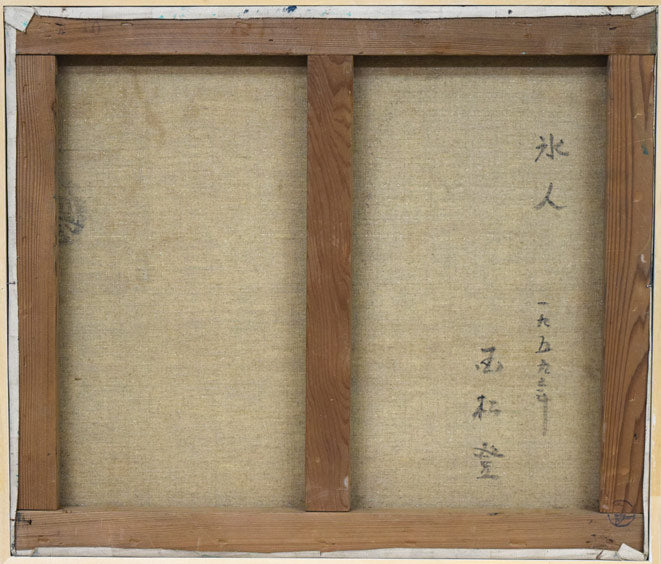 氷人
一九五九年
西松登